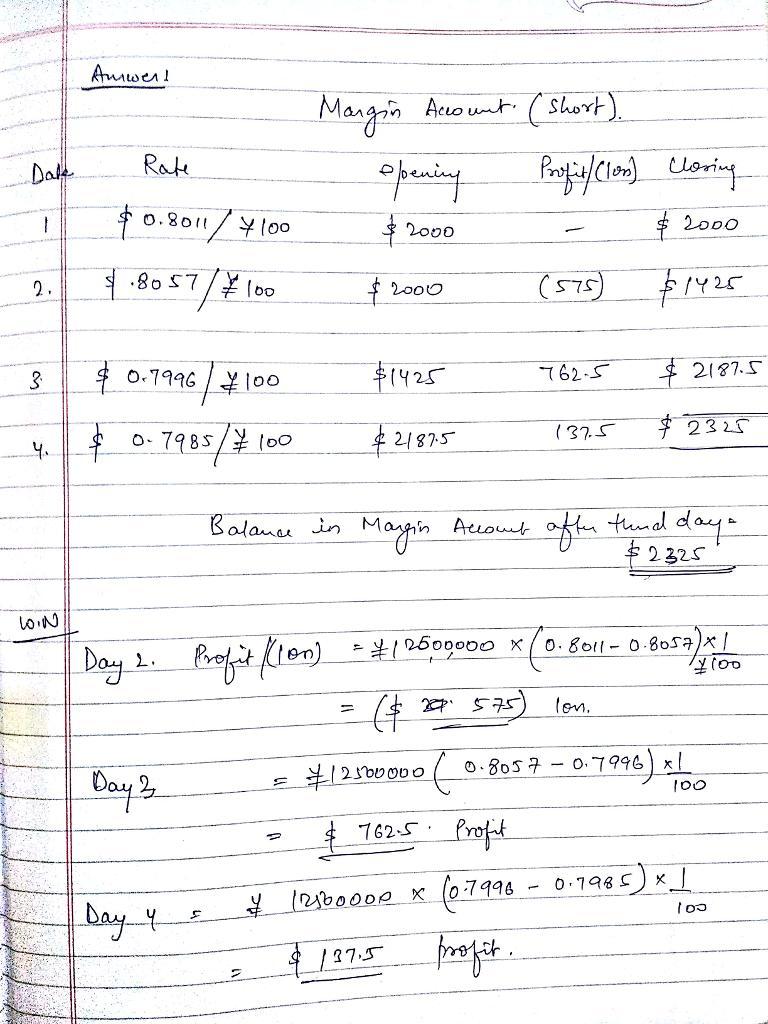 Answer:
Margin Account. (Short).
Date Rate Opening Profit/(loss) Closing
1 $ 0.8011/¥100 $ 2000 - $ 2000
2. $ .8057/¥100 $ 2000 (575) $ 1425
3 $ 0.7996/¥100 $1425 762.5 $ 2187.5
4. $ 0.7985/¥100 $ 2187.5 137.5 $ 2325
Balance in Margin Account after third day =
$ 2325
W.N
Day 2. Profit/(loss) = ¥12500000 x (0.8011 - 0.8057) x 1/¥100
= ($ 575) loss.
Day 3 = ¥12500000 (0.8057 - 0.7996) x 1/100
= $ 762.5. Profit
Day 4 = ¥ 12500000 x (0.7996 - 0.7985) x 1/100
= $ 137.5 profit.